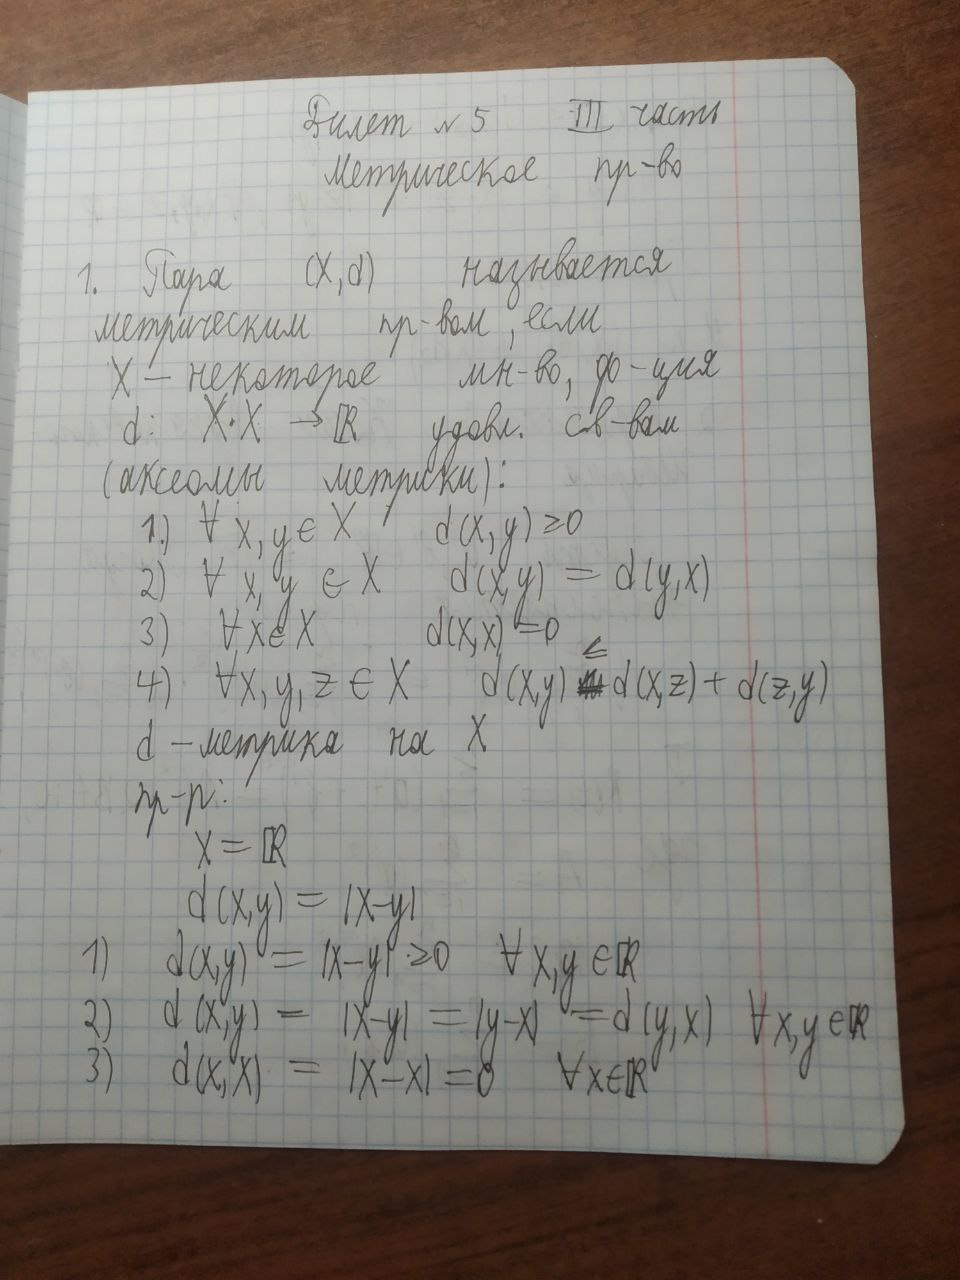 Билет № 5 III часть
Метрическое пр-во
1. Пара (X,d) называется
метрическим пр-вом, если
X – некоторое мн-во, ф-ция
d: X·X → ℝ удовл. св-вам
(аксеомы метрики):
1.) ∀ x,y ∈ X d(x,y) ≥ 0
2) ∀ x,y ∈ X d(x,y) = d(y,x)
3) ∀x∈X d(x,x) = 0
4) ∀x,y,z ∈ X d(x,y) ≤ d(x,z) + d(z,y)
d – метрика на X
пр-р:
X = ℝ
d(x,y) = |x-y|
1) d(x,y) = |x-y| ≥ 0 ∀ x,y ∈ ℝ
2) d(x,y) = |x-y| = |y-x| = d(y,x) ∀x,y ∈ ℝ
3) d(x,x) = |x-x| = 0 ∀x∈ℝ